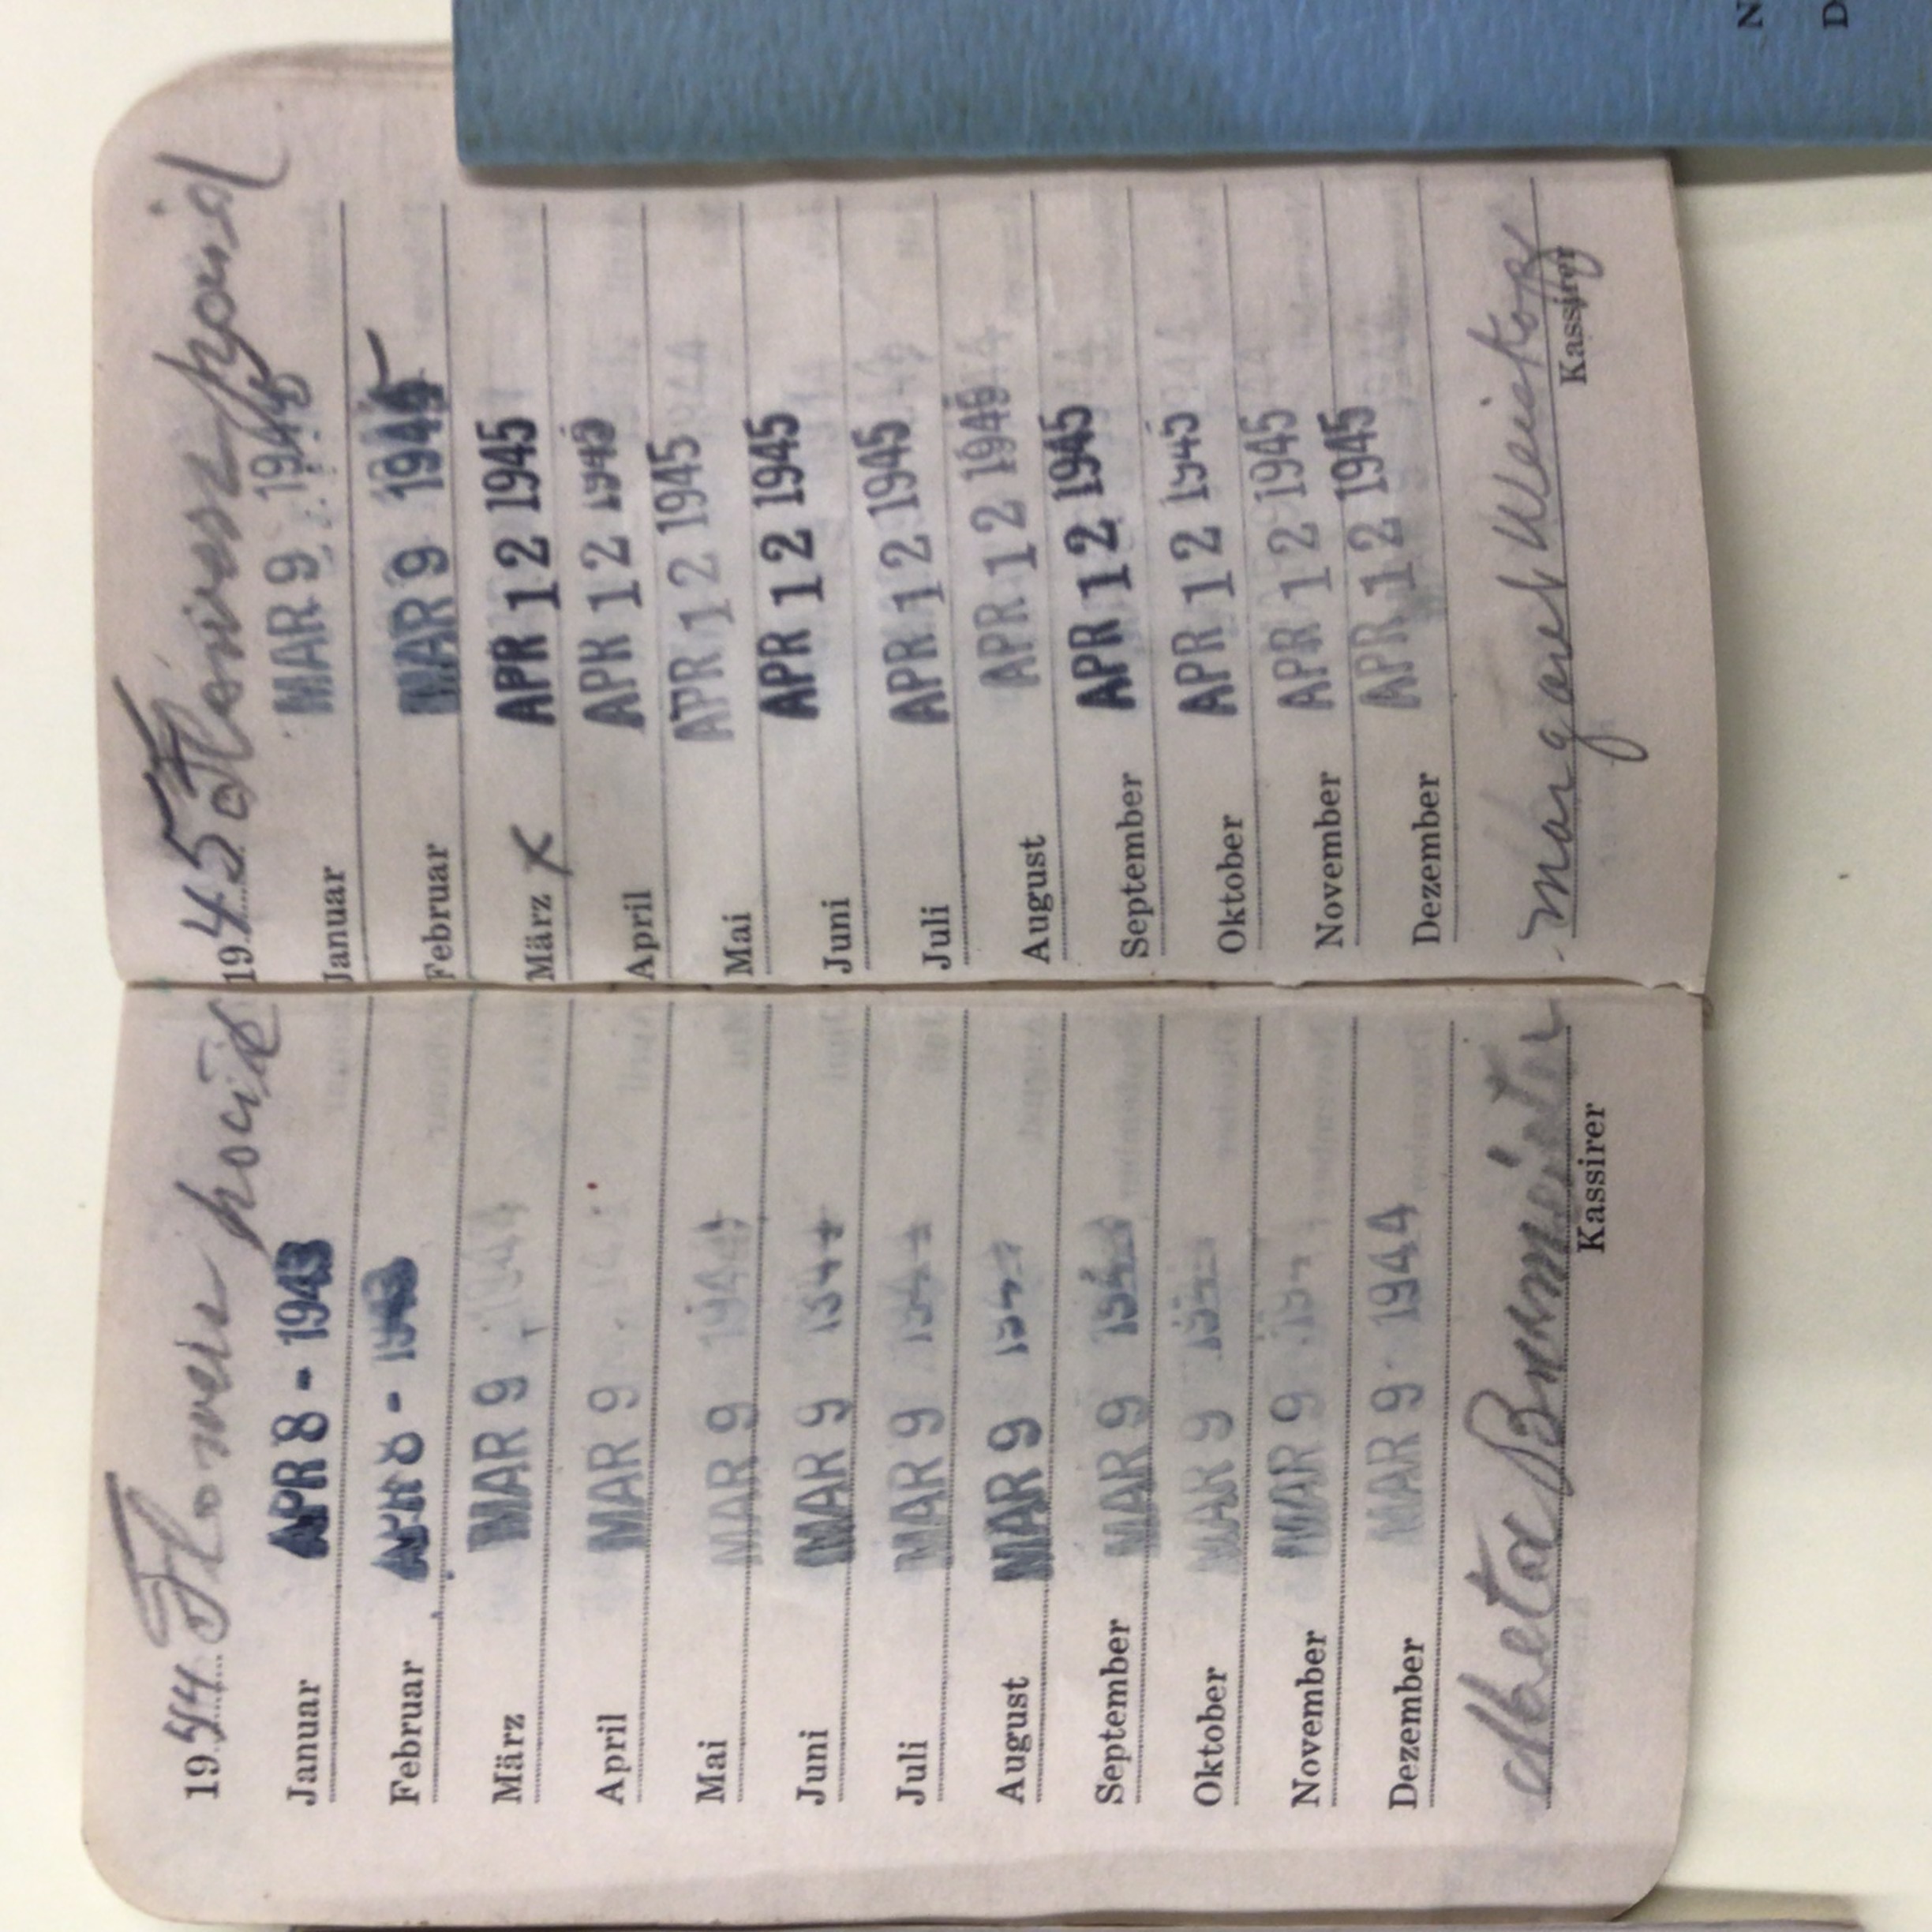 1944
Januar APR 8 - 1943
Februar APR 8 - 1943
März MAR 9 1944
April MAR 9
Mai MAR 9 1944
Juni MAR 9 1944
Juli MAR 9 1944
August MAR 9
September MAR 9
Oktober MAR 9
November MAR 9
Dezember MAR 9 - 1944
Kassirer
1945
Januar MAR 9
Februar MAR 9 1945
März X APR 12 1945
April APR 12 1945
Mai APR 12 1945
Juni APR 12 1945
Juli APR 12 1945
August APR 12 1945
September APR 12 1945
Oktober APR 12 1945
November APR 12 1945
Dezember APR 12 1945
Margaret
Kassirer
N
D